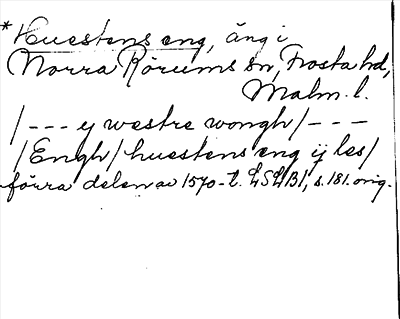 *Huestens eng, äng i
Norra Rörums sn, Frosta hd,
Malm. l.
/--- y westre wongh/---
/Engh/huestens eng ij les/
förra delen av 1570-t. LSLB1, s. 181. orig.